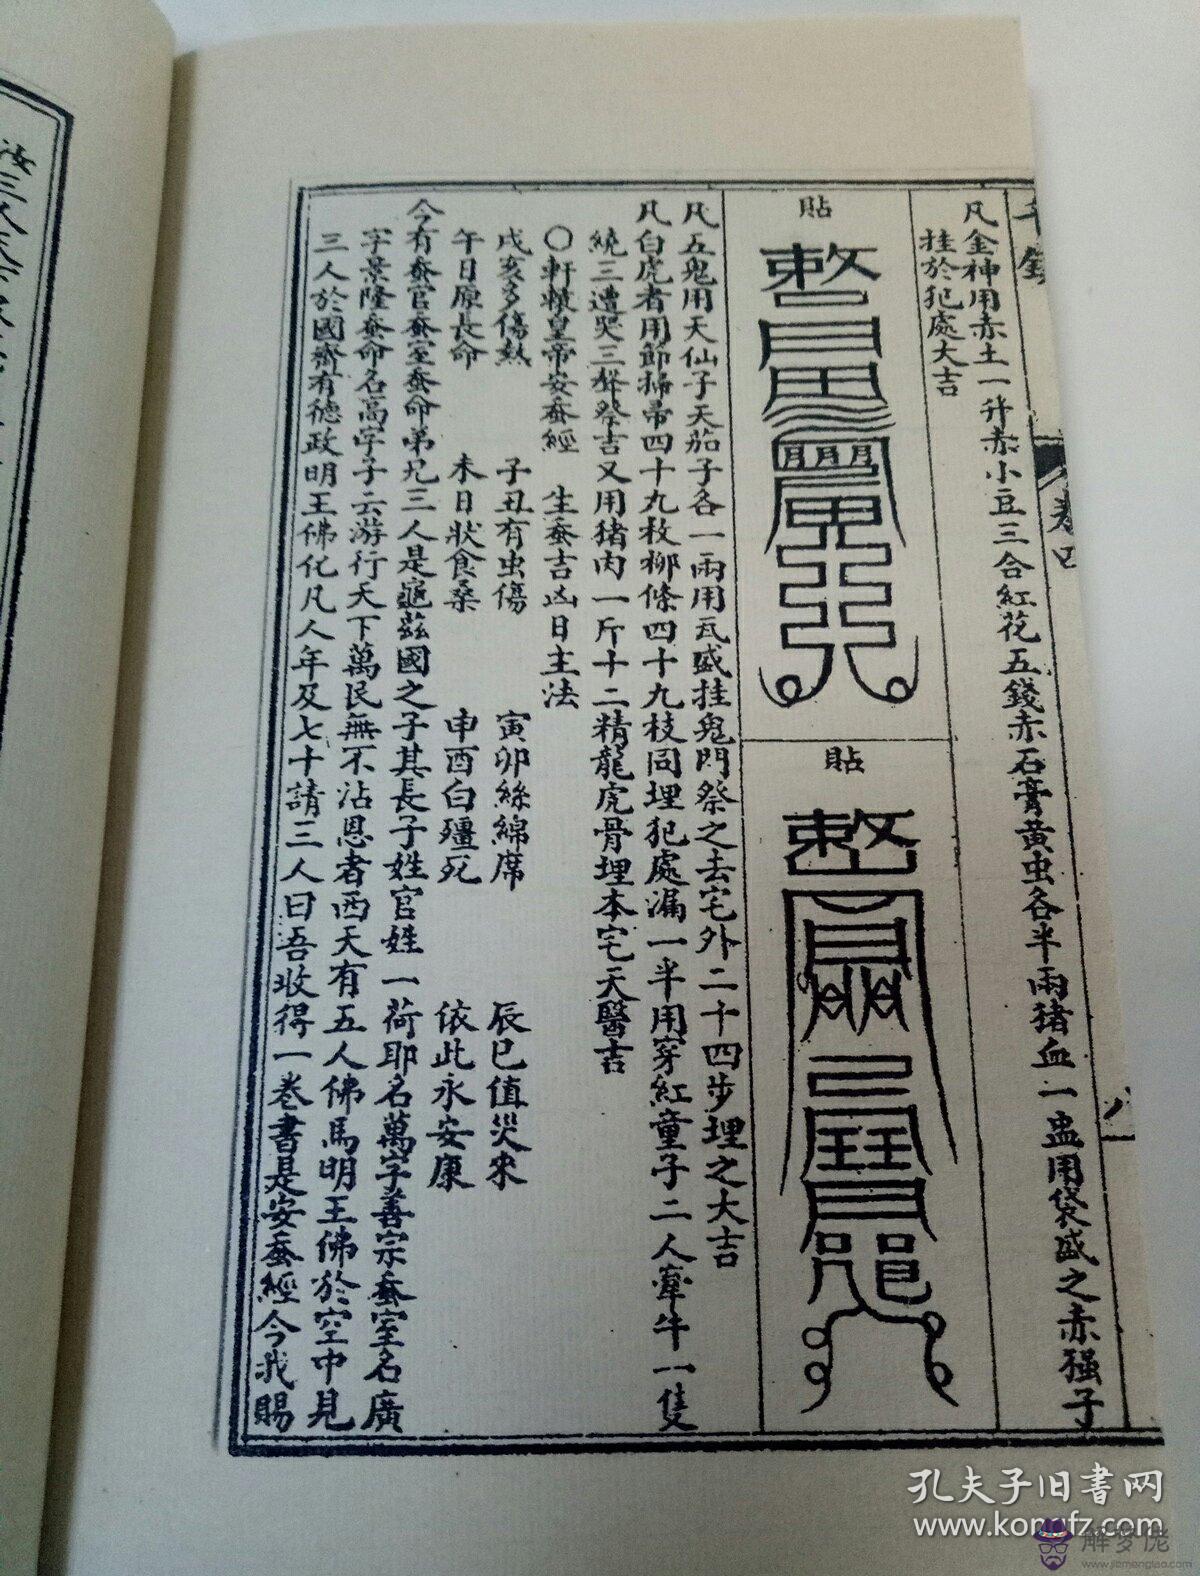 卷四
八
凡金神用赤土一升赤小豆三合紅花五錢赤石膏黄虫各半兩猪血一盅用袋盛之赤強子
挂於犯處大吉
貼
貼
凡五鬼用天仙子天茄子各一兩用瓦盛挂鬼門祭之去宅外二十四步埋之大吉
凡白虎者用節掃帚四十九枚柳條四十九枝同埋犯處漏一半用穿紅童子二人牽牛一隻
繞三遭哭三聲祭吉又用猪肉一斤十二精龍虎骨埋本宅天醫吉
〇軒轅皇帝安蚕經 生蚕吉凶日主法
戌亥多傷熱 子丑有虫傷 寅卯絲綿席 辰巳值災來
午日原長命 未日狀食桑 申酉白殭死 依此永安康
今有蚕官蚕室蚕命弟兄三人是龜兹國之子其長子姓官姓一荷耶名萬字善宗蚕室名廣
字景隆蚕命名高字子云游行天下萬民無不沾恩者西天有五人佛馬明王佛於空中見
三人於國齋有德政明王佛化凡人年及七十請三人曰吾收得一卷書是安蚕經今我賜
汝三人
孔夫子旧书网
www.kongfz.com
解梦佬
www.jiemenglao.com